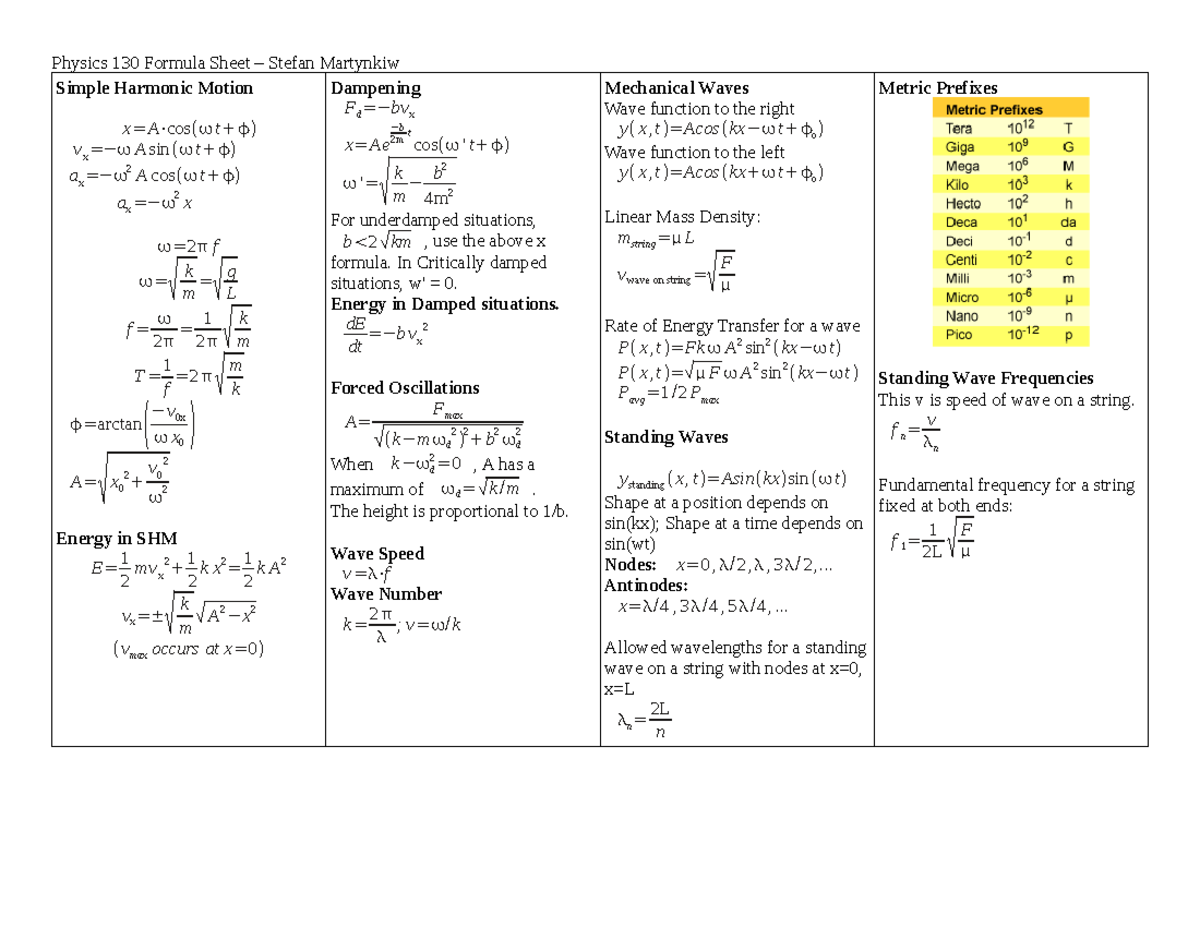 Physics 130 Formula Sheet – Stefan Martynkiw
Simple Harmonic Motion
x=A·cos(ωt+ϕ)
vₓ=−ω A sin(ωt+ϕ)
aₓ=−ω² A cos(ωt+ϕ)
aₓ=−ω² x
ω=2π f
ω=√(k/m)=√(g/L)
f=ω/2π=1/2π √(k/m)
T=1/f=2π√(m/k)
ϕ=arctan(−v₀ₓ/ω x₀)
A=√(x₀²+v₀²/ω²)
Energy in SHM
E=1/2 mvₓ²+1/2 k x²=1/2 k A²
vₓ=±√(k/m) √(A²−x²)
(v_max occurs at x=0)
Dampening
F_d=−bvₓ
x=Ae^(−b/2m t) cos(ω't+ϕ)
ω'=√(k/m−b²/4m²)
For underdamped situations,
b<2√km , use the above x
formula. In Critically damped
situations, w' = 0.
Energy in Damped situations.
dE/dt=−bvₓ²
Forced Oscillations
A=F_max/√((k−mω_d²)²+b²ω_d²)
When k−ω_d²=0 , A has a
maximum of ω_d=√(k/m) .
The height is proportional to 1/b.
Wave Speed
v=λ·f
Wave Number
k=2π/λ; v=ω/k
Mechanical Waves
Wave function to the right
y(x,t)=Acos(kx−ωt+ϕ₀)
Wave function to the left
y(x,t)=Acos(kx+ωt+ϕ₀)
Linear Mass Density:
m_string=μ L
v_wave on string=√(F/μ)
Rate of Energy Transfer for a wave
P(x,t)=Fkω A² sin²(kx−ωt)
P(x,t)=√(μ F) ω A² sin²(kx−ωt)
P_avg=1/2 P_max
Standing Waves
y_standing(x,t)=Asin(kx)sin(ωt)
Shape at a position depends on
sin(kx); Shape at a time depends on
sin(wt)
Nodes: x=0,λ/2,λ,3λ/2,...
Antinodes:
x=λ/4,3λ/4,5λ/4,...
Allowed wavelengths for a standing
wave on a string with nodes at x=0,
x=L
λₙ=2L/n
Metric Prefixes
Metric Prefixes
Tera 10¹² T
Giga 10⁹ G
Mega 10⁶ M
Kilo 10³ k
Hecto 10² h
Deca 10¹ da
Deci 10⁻¹ d
Centi 10⁻² c
Milli 10⁻³ m
Micro 10⁻⁶ μ
Nano 10⁻⁹ n
Pico 10⁻¹² p
Standing Wave Frequencies
This v is speed of wave on a string.
fₙ=v/λₙ
Fundamental frequency for a string
fixed at both ends:
f₁=1/2L √(F/μ)